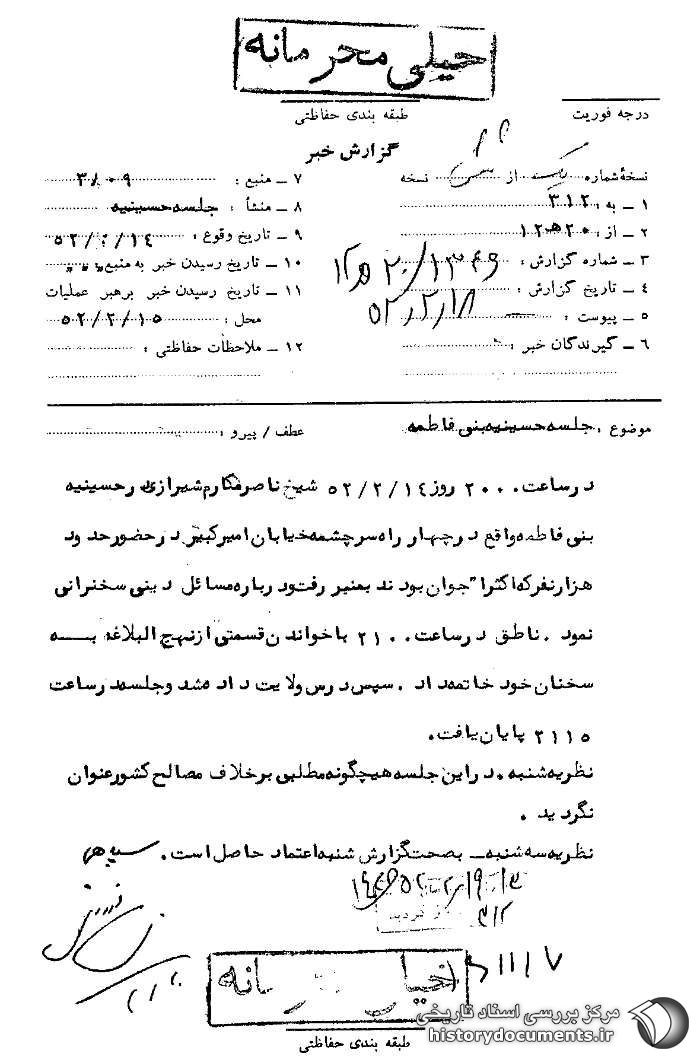 خیلی محرمانه
طبقه بندی حفاظتی
درجه فوریت
گزارش خبر
نسخهٔ شماره یک از شش نسخه
۱ – به : ۳۱۲
۲ – از : ۲۰ ه ۱۲
۳ – شماره گزارش :
۴ – تاریخ گزارش : ۵۲/۲/۱۸
۵ – پیوست : —
۶ – گیرندگان خبر :
۷ – منبع : ۳۸۰۹
۸ – منشأ : جلسه حسینیه
۹ – تاریخ وقوع : ۵۲/۲/۱۴
۱۰ – تاریخ رسیدن خبر به منبع : " " "
۱۱ – تاریخ رسیدن خبر برهبر عملیات
محل : ۵۲/۲/۱۵
۱۲ – ملاحظات حفاظتی :
موضوع : جلسه حسینیه بنی فاطمه
عطف / پیرو :
درساعت ۲۰۰۰ روز ۵۲/۲/۱۴ شیخ ناصر مکارم شیرازی رحسینیه
بنی فاطمه واقع درچهار راه سرچشمه خیابان امیرکبیر در حضور حدود
هزارنفر که اکثرا" جوان بودند بمنبر رفت و درباره مسائل دینی سخنرانی
نمود . ناطق درساعت ۲۱۰۰ باخواندن قسمتی از نهج البلاغه بـــه
سخنان خود خاتمه داد . سپس درس ولایت داده شد و جلسه درساعت
۲۱۱۵ پایان یافت .
نظریه شنبه . در این جلسه هیچگونه مطلبی برخلاف مصالح کشور عنوان
نگردید .
نظریه سه شنبه – بصحت گزارش شنبه اعتماد حاصل است .
۳۱۲
خیلی محرمانه
طبقه بندی حفاظتی
مرکز بررسی اسناد تاریخی
historydocuments.ir